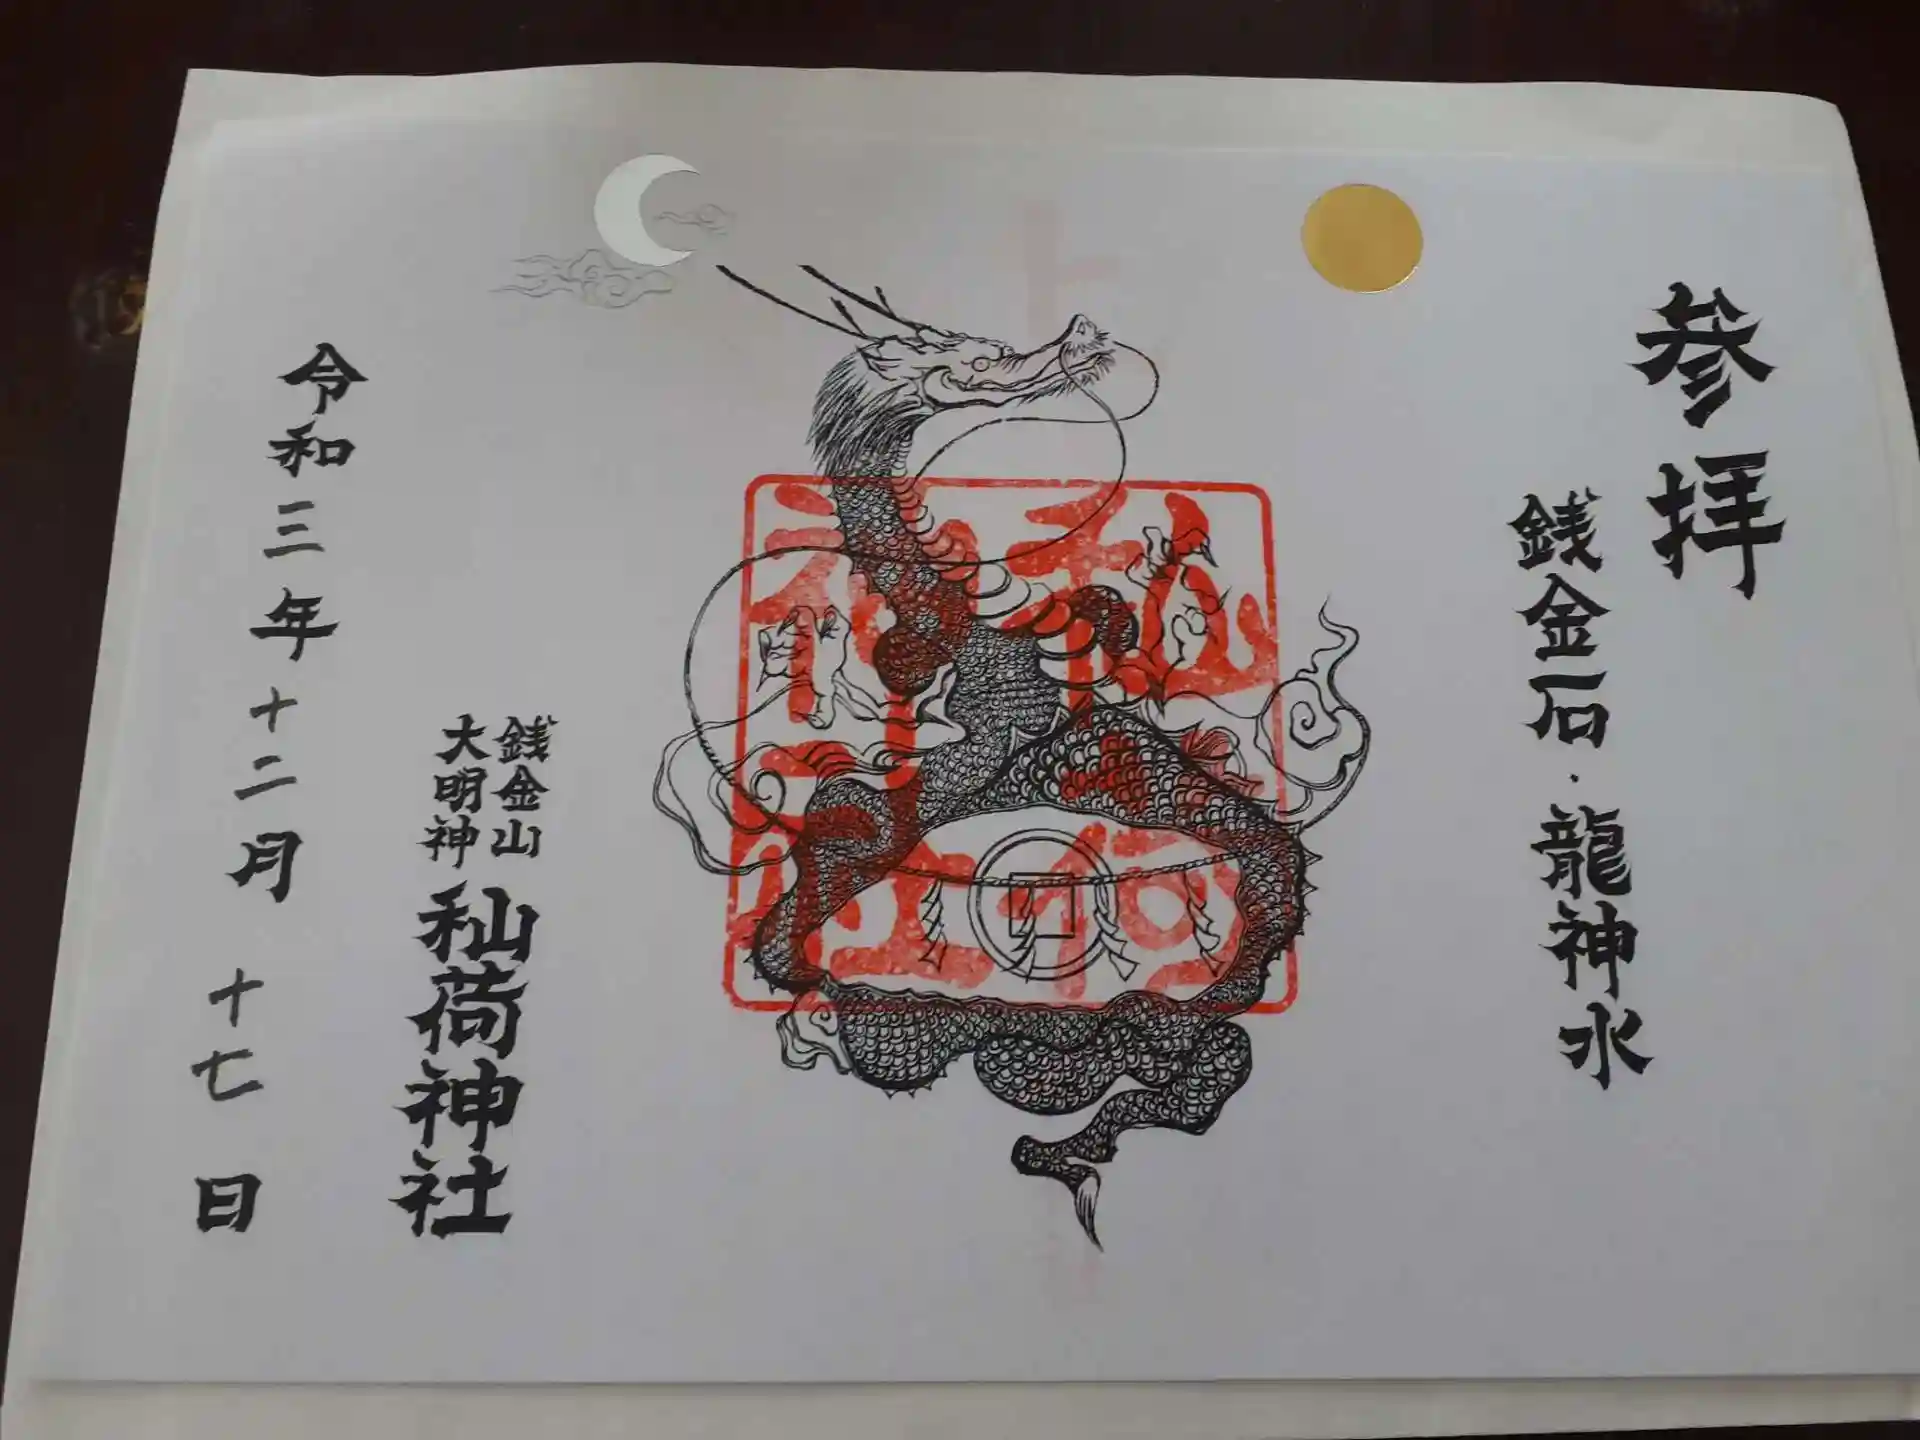 参拝
銭金石・龍神水
秈荷
神社
銭金山
大明神
秈荷神社
令和三年十二月十七日